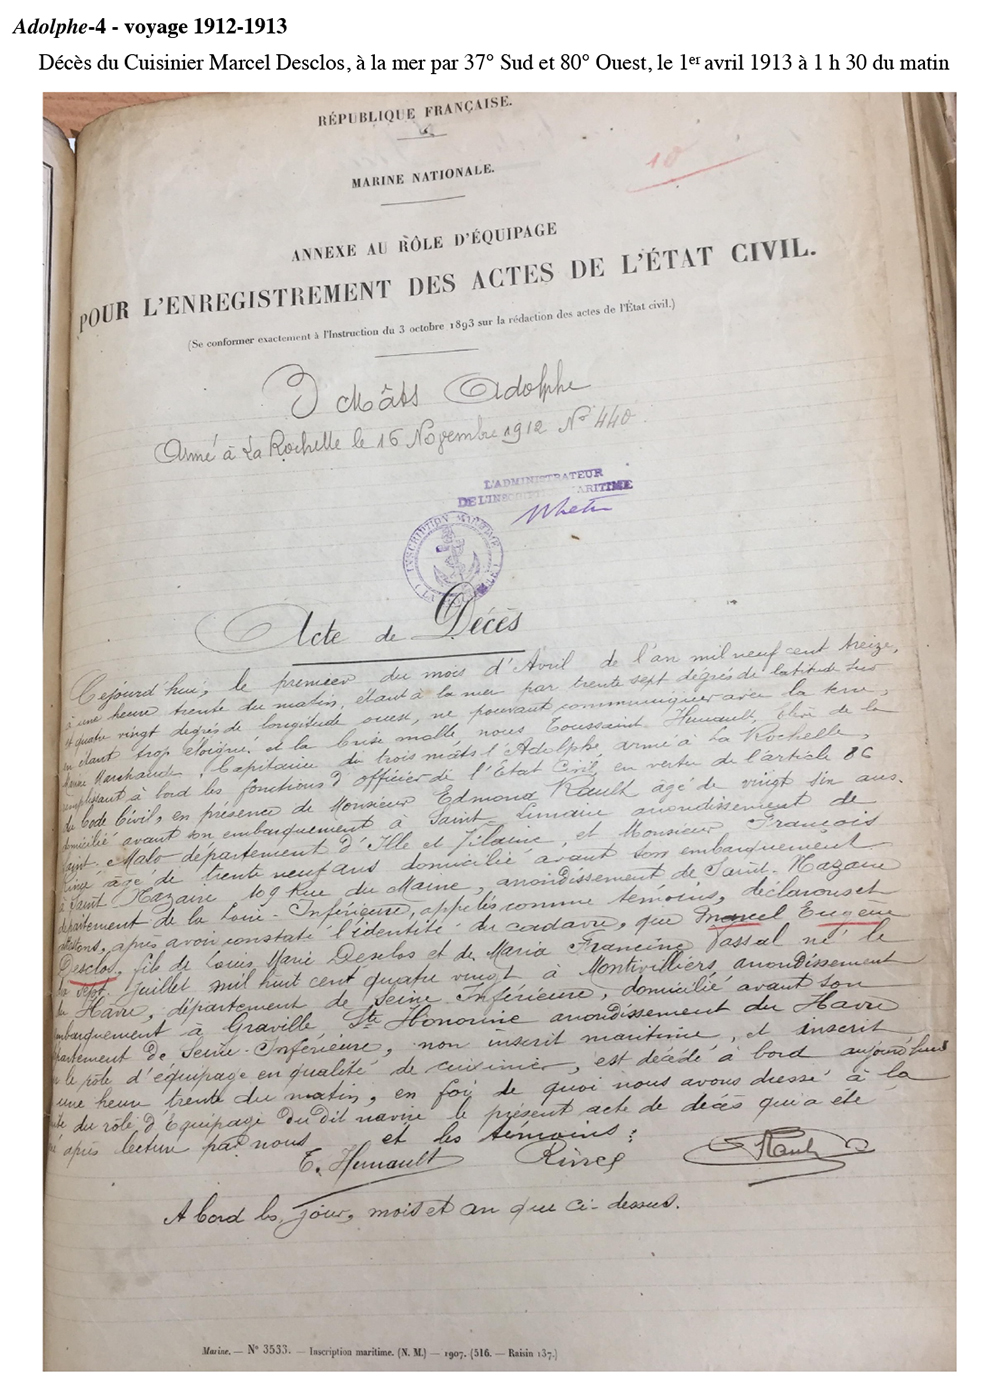 Adolphe-4 - voyage 1912-1913
Décès du Cuisinier Marcel Desclos, à la mer par 37° Sud et 80° Ouest, le 1er avril 1913 à 1 h 30 du matin
RÉPUBLIQUE FRANÇAISE.
10
MARINE NATIONALE.
ANNEXE AU RÔLE D'ÉQUIPAGE
POUR L'ENREGISTREMENT DES ACTES DE L'ÉTAT CIVIL.
(Se conformer exactement à l'Instruction du 3 octobre 1893 sur la rédaction des actes de l'État civil.)
3 Mâts Adolphe
Armé à La Rochelle le 16 Novembre 1912 N° 440
L'ADMINISTRATEUR
DE L'INSCRIPTION MARITIME
INSCRIPTION MARITIME
Acte de Décès
Cejourd'hui, le premier du mois d'Avril de l'an mil neuf cent treize,
à une heure trente du matin, étant à la mer par trente sept dégrés de latitude sur
et quatre vingt dégrés de longitude ouest, ne pouvant communiquer avec la terre,
en étant trop éloigné, et la brise molle, nous Toussaint Hunault, de la
Marine Marchande, Capitaine du trois mâts l'Adolphe armé à La Rochelle,
remplissant à bord les fonctions d'officier de l'Etat Civil en vertu de l'article 86
du Code Civil, en présence de Monsieur Edmond Rault âgé de vingt six ans.
domicilié avant son embarquement à Saint-Lunaire arrondissement de
Saint-Malo département d'Ille et Vilaine, et Monsieur François
âgé de trente neuf ans domicilié avant son embarquement
à Saint Nazaire 109 Rue du Maine, arrondissement de Saint-Nazaire
département de la Loire-Inférieure, appelés comme témoins, déclarons et
attestons, après avoir constaté l'identité du cadavre, que Marcel Eugène
Desclos, fils de Louis Marie Desclos et de Maria Francine Vassal né le
sept Juillet mil huit cent quatre vingt à Montivilliers arrondissement
du Hâvre, département de Seine Inférieure, domicilié avant son
embarquement à Graville Ste Honorine arrondissement du Havre
département de Seine-Inférieure, non inscrit maritime, et inscrit
sur le rôle d'équipage en qualité de cuisinier, est décédé à bord aujourd'hui
à une heure trente du matin, en foi de quoi nous avons dressé à la
suite du rôle d'Equipage du dit navire le présent acte de décès qui a été
signé après lecture par nous et les témoins:
T. Hunault Rault
A bord les jour, mois et an que ci-dessus.
Marine. — N° 3533. — Inscription maritime. (N. M.) — 1907. (516. — Raisin 137.)